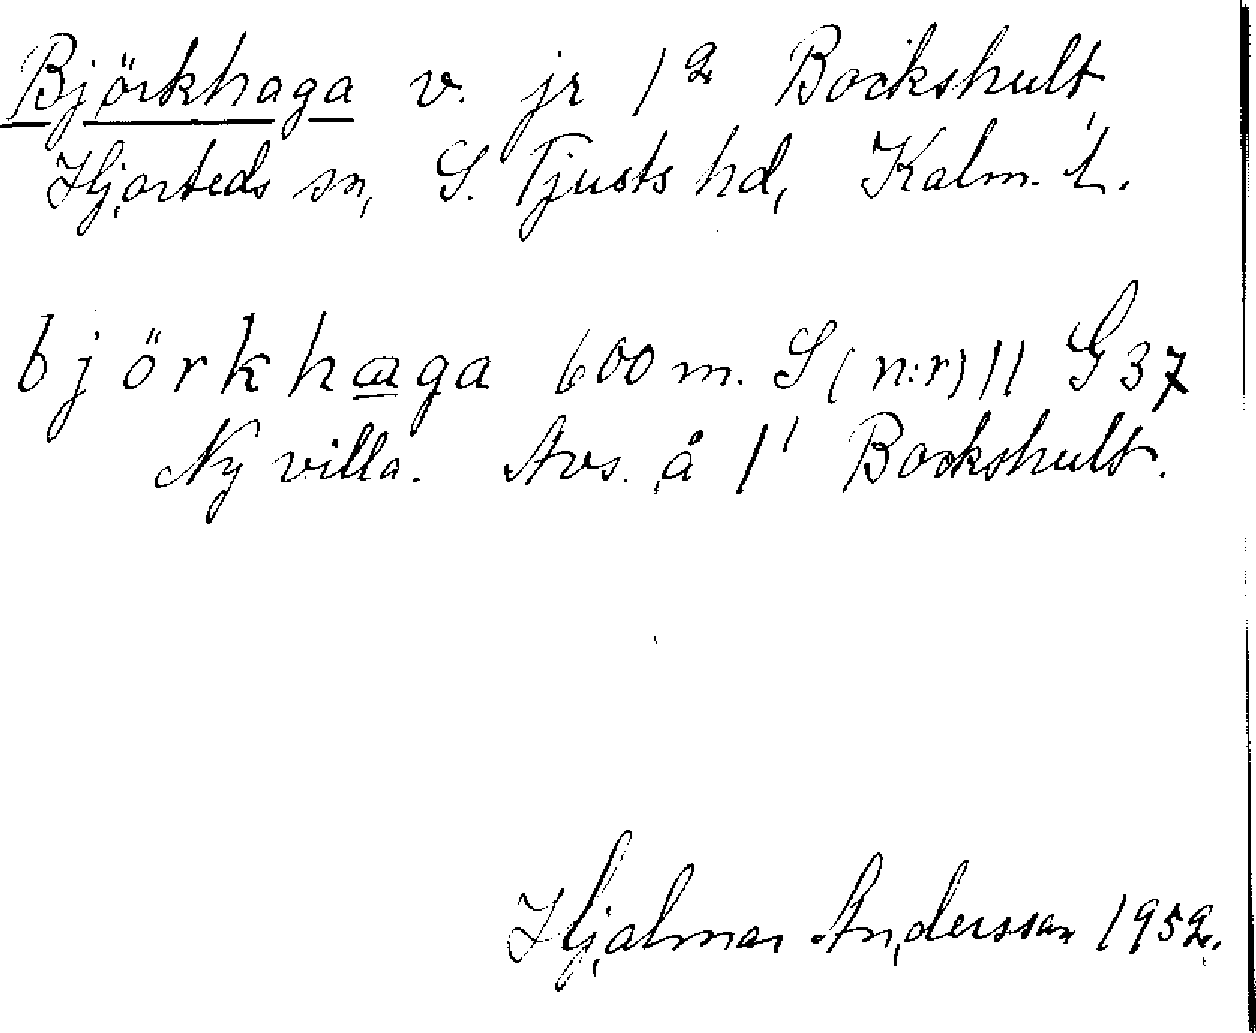 Björkhaga v. jr 1² Bockshult,
Hjorteds sn, S. Tjusts hd, Kalm. l.
björkhaga 600 m. S (n:r) 11 G 37
Ny villa. Avs. å 1¹ Bockshult.
Hjalmar Andersson 1952.